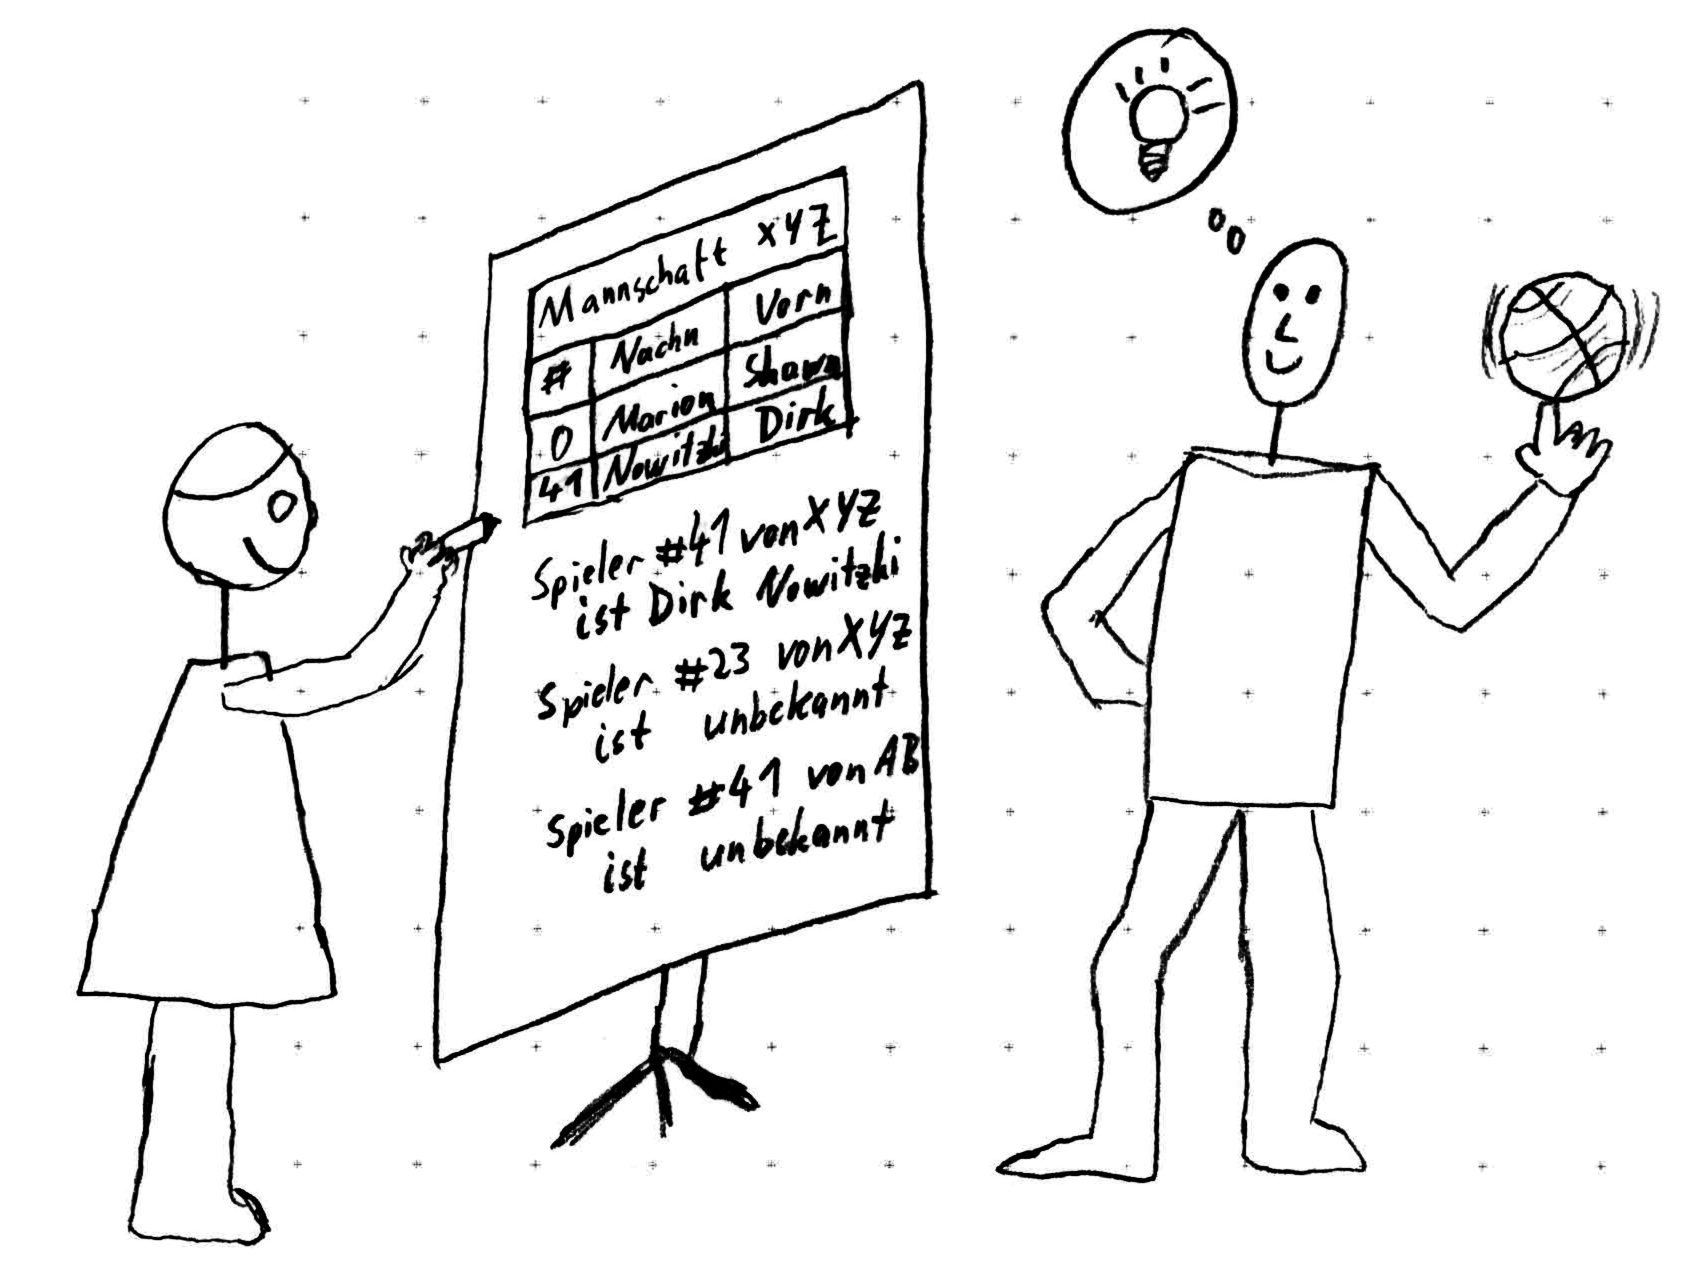 Mannschaft XYZ
# Nachn Vorn
0 Marion Shawn
41 Nowitzki Dirk
Spieler #41 von XYZ
ist Dirk Nowitzki
Spieler #23 von XYZ
ist unbekannt
Spieler #41 von AB
ist unbekannt